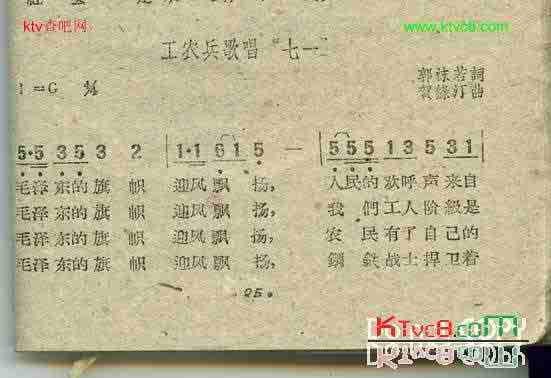 ktv查吧网
www.ktvc8.com
工农兵歌唱“七一”
郭沫若詞
1=G 2/4
賀綠汀曲
5·5 3 5 3 2 | 1·1 6 1 5 — | 5 5 5 1 3 5 3 1 |
毛泽东的旗帜 迎风飘扬， 人民的欢呼声来自
毛泽东的旗帜 迎风飘扬， 我們工人阶級是
毛泽东的旗帜 迎风飘扬， 农民有了自己的
毛泽东的旗帜 迎风飘扬， 鋼鉄战士捍卫着
·25·
KTvc8.com